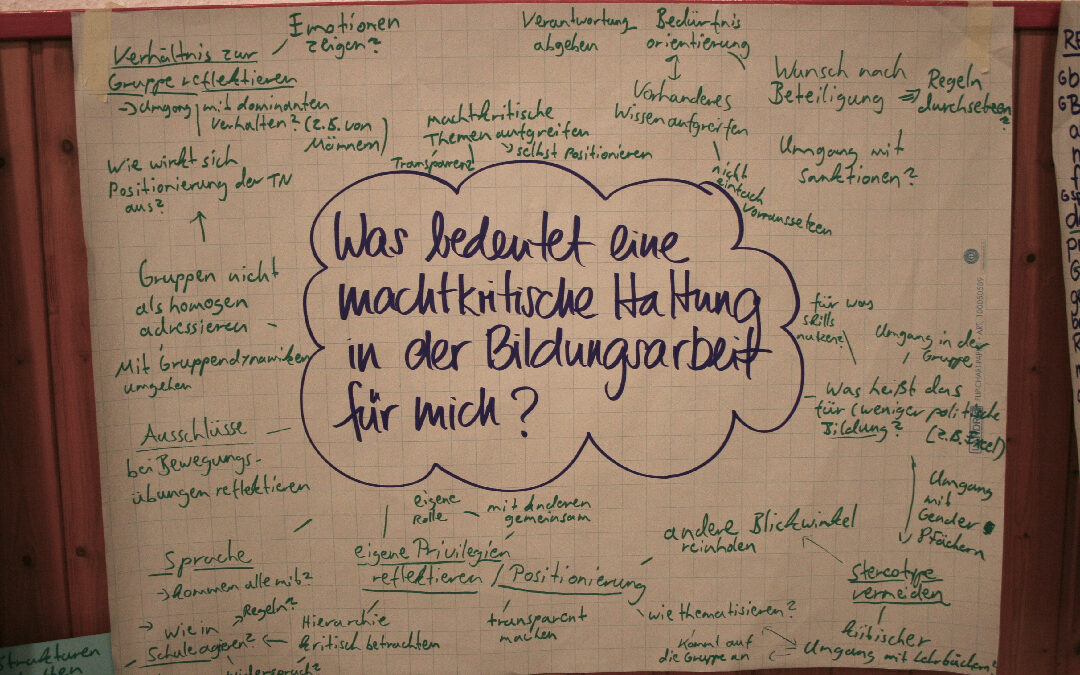 Emotionen
zeigen?
Verhältnis zur
Gruppe reflektieren
→ Umgang mit dominanten
verhalten? (z.B. von
Männern)
Wie wirkt sich
Positionierung der TN
aus?
Gruppen nicht
als homogen
adressieren
Mit Gruppendynamiken
umgehen
Ausschlüsse
bei Bewegungs-
übungen reflektieren
Verantwortung
abgeben
Bedürfnis
orientierung
Vorhanderes
Wissen aufgreifen
nicht
einfach
vorraussetzen
Wunsch nach
Beteiligung
Regeln
durchsetzen
?
Umgang mit
Sanktionen?
machtkritische
Themen aufgreifen
selbst Positionieren
Transparenz
Was bedeutet eine
machtkritische Haltung
in der Bildungsarbeit
für mich?
für was
skills
nutzen?
Umgang in der
Gruppe
Was heißt das
für (weniger politische
Bildung?
(z.B. Excel)
Umgang
mit
Gender
Stereotype
vermeiden
kritischer
Umgang mit Lehrbüchern?
andere Blickwinkel
reinholen
eigene
Rolle
mit Anderen
gemeinsam
eigene Privilegien
reflektieren / Positionierung
transparent
machen
wie thematisieren?
kommt auf
die Gruppe an
Hierarchie
kritisch betrachten
Sprache
→ kommen alle mit?
→ Regeln?
→ Wie in
Schule agieren?
widerspruch?
Strukturen